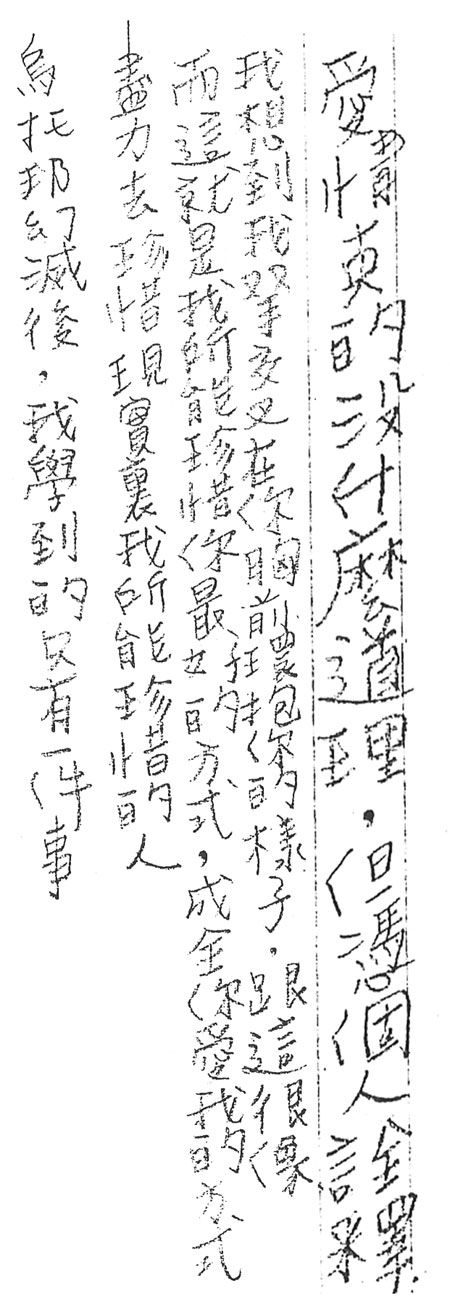 愛情真的沒什麼道理，但憑個人詮釋
我想到我雙手交叉在你胸前環抱你的樣子，跟這很像
而這就是我所能珍惜你最好的方式，成全你愛我的方式
盡力去珍惜現實裏我所能珍惜的人
烏托邦幻滅後，我學到的只有一件事